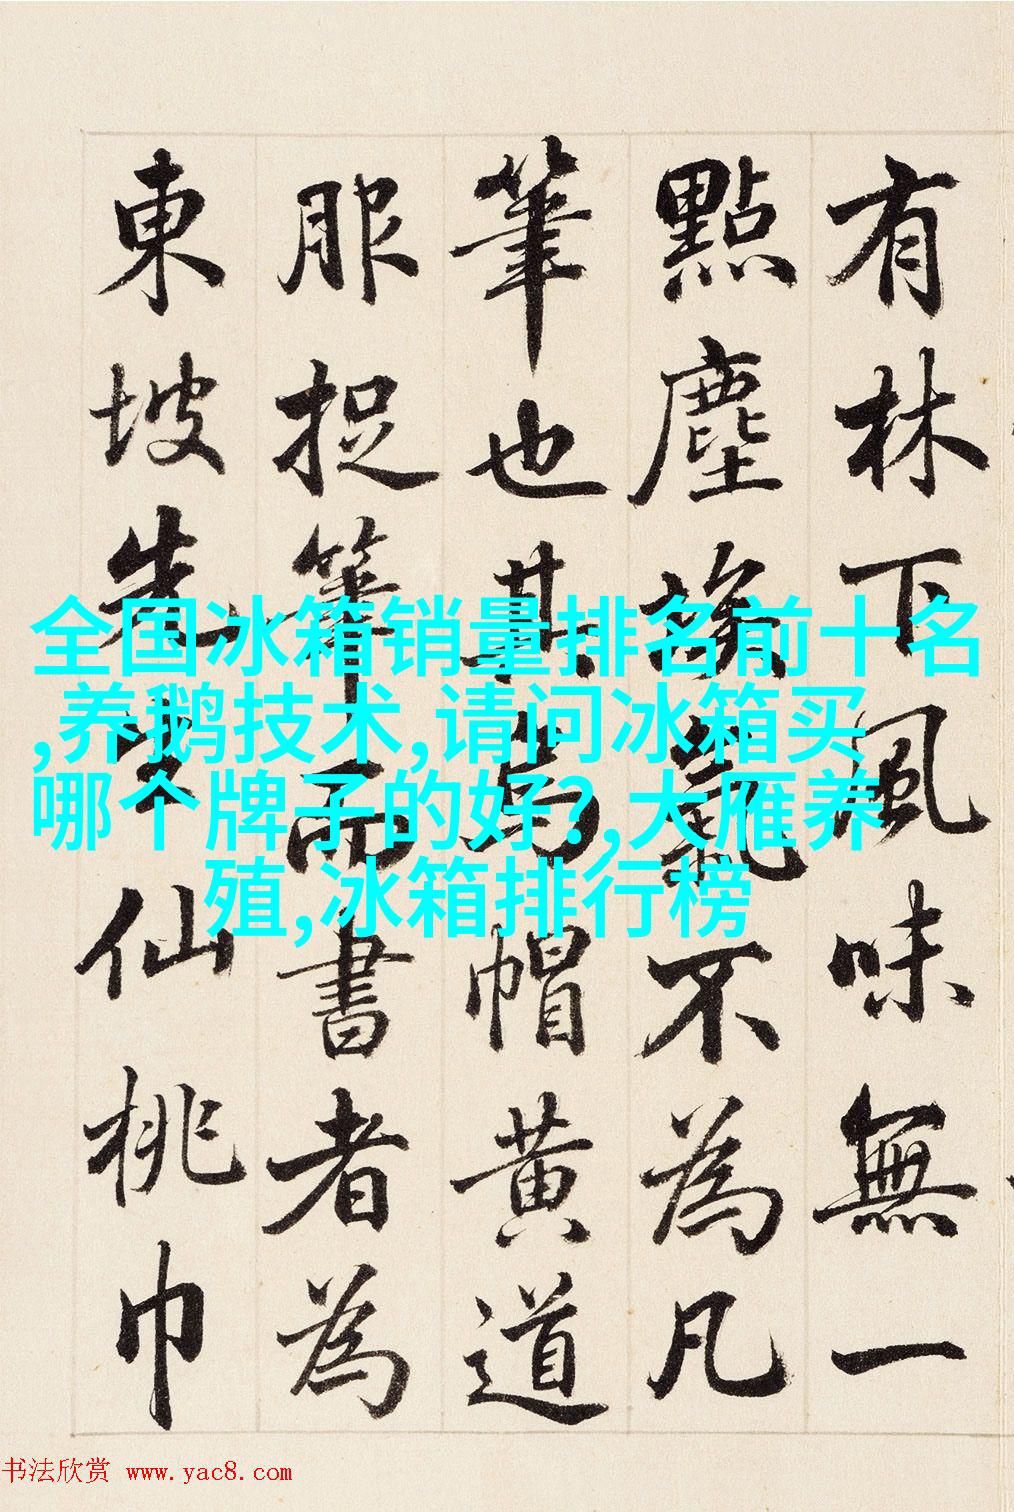 有林下風味無一
點塵埃氣不為凡
筆也其烏帽黃道
服捉筆而書者為
東坡先生仙桃巾
全国冰箱销量排名前十名
,养鹅技术,请问冰箱买
哪个牌子的好?,大雁养
殖,冰箱排行榜
书法欣赏 www.yac8.com